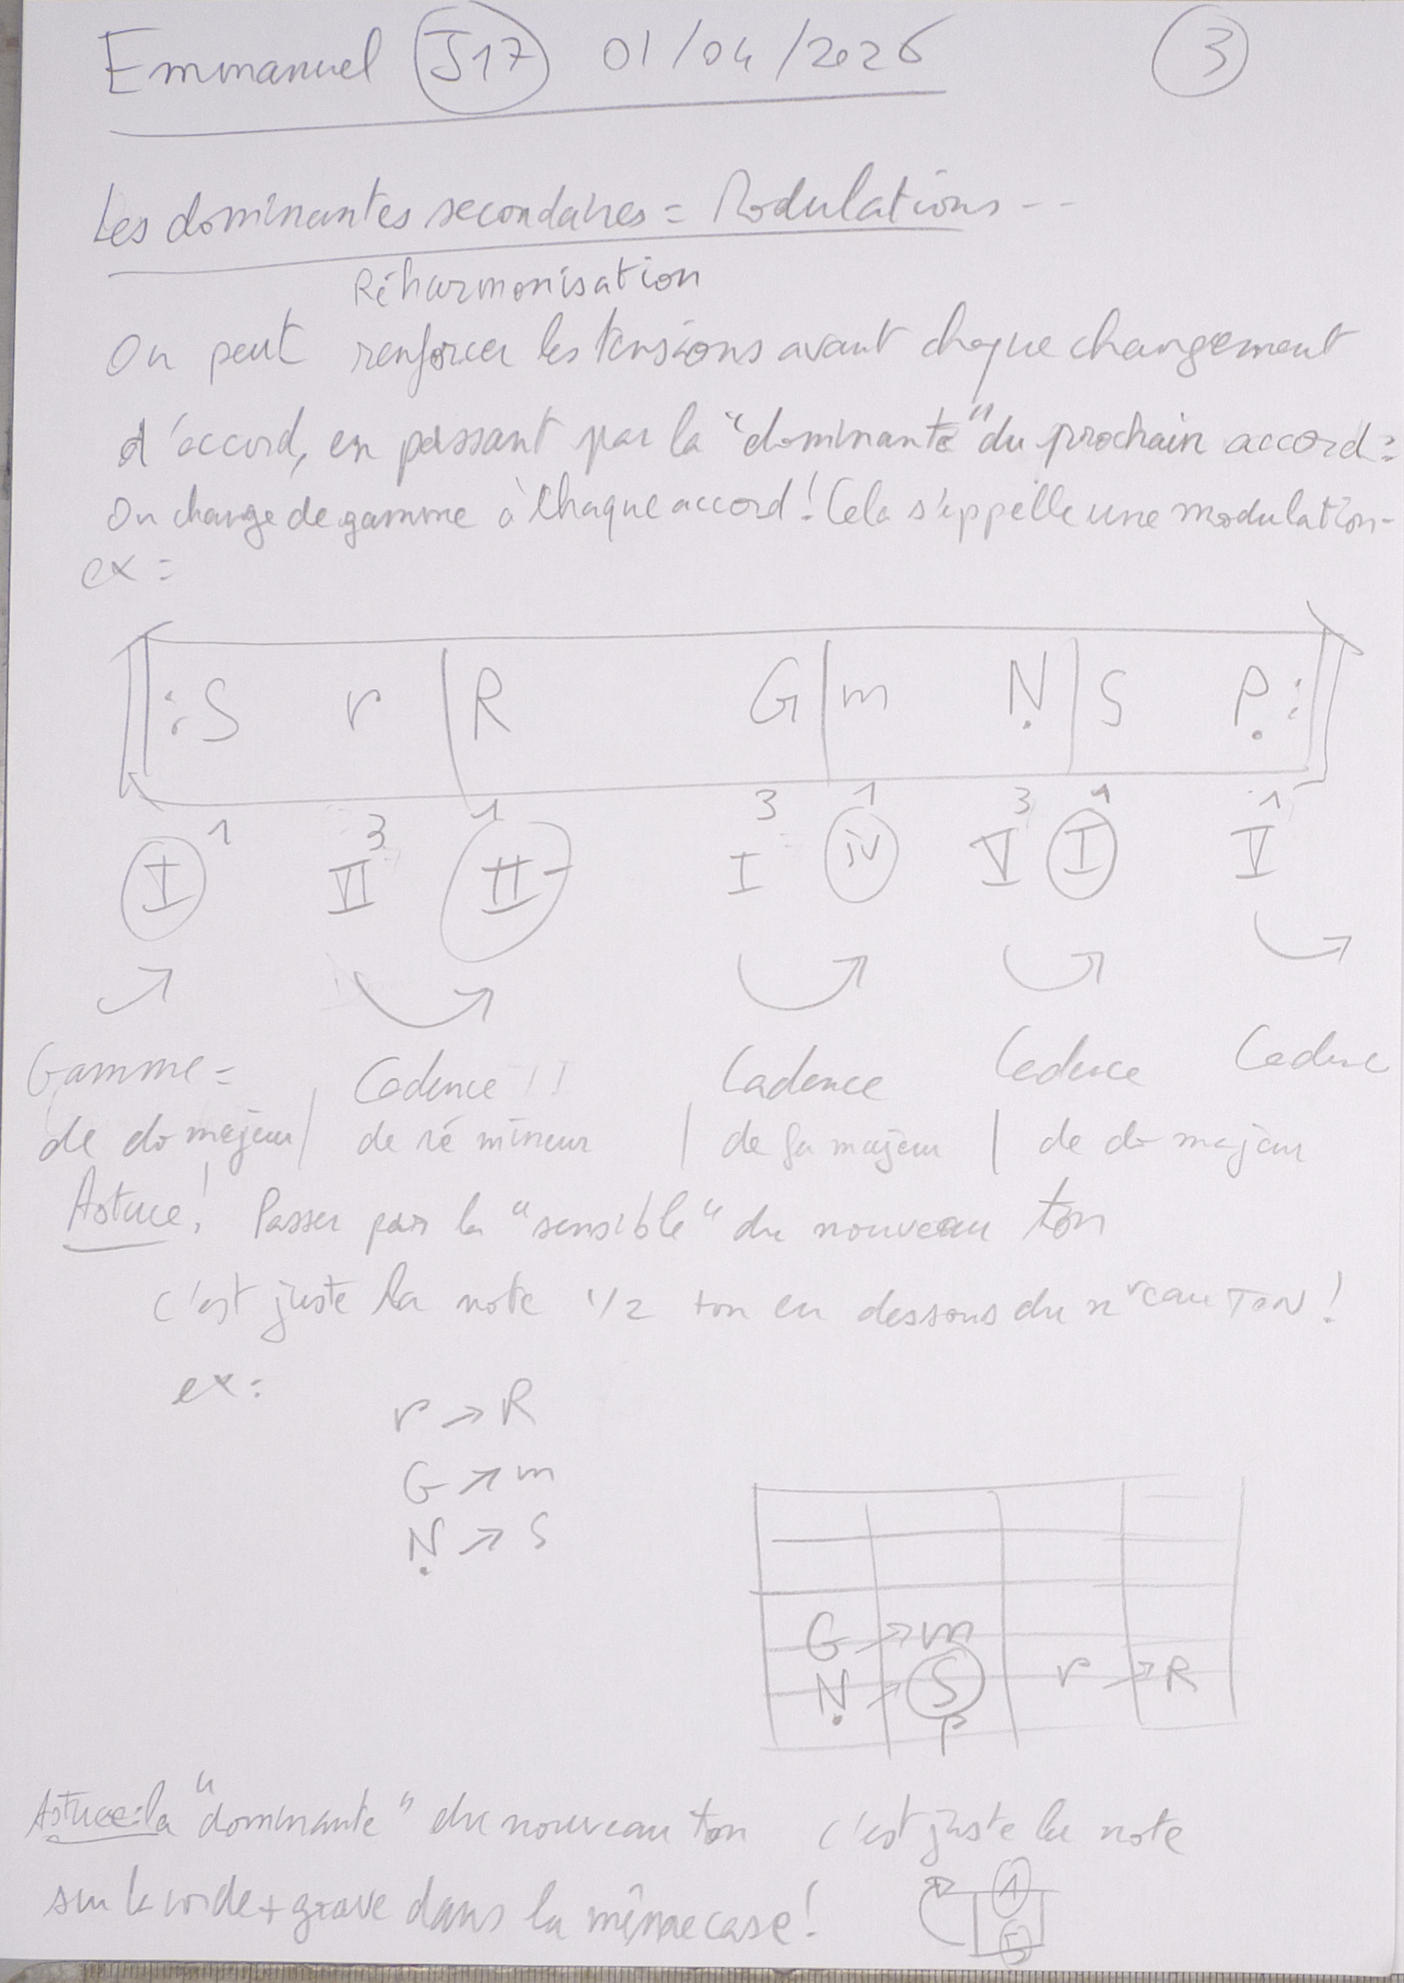 Emmanuel J17 01/04/2026 3
Les dominantes secondaires = Modulations --
Réharmonisation
On peut renforcer les tensions avant chaque changement
d'accord, en passant par la "dominante" du prochain accord :
On change de gamme à chaque accord ! Cela s'appelle une modulation -
ex :
: S r | R G | m Ṇ | S P̣ :
1 3 1 3 1 3 1 1
I VI II- I IV V I V
Gamme = Cadence !! Cadence Cadence Cadence
de do majeur | de ré mineur | de fa majeur | de do majeur
Astuce ! Passer par la "sensible" du nouveau ton
c'est juste la note 1/2 ton en dessous du nveau TON !
ex :
r → R
G → m
Ṇ → S
G → m
Ṇ → S r → R
P
Astuce : la "dominante" du nouveau ton c'est juste la note
sur la corde + grave dans la même case !
1
5